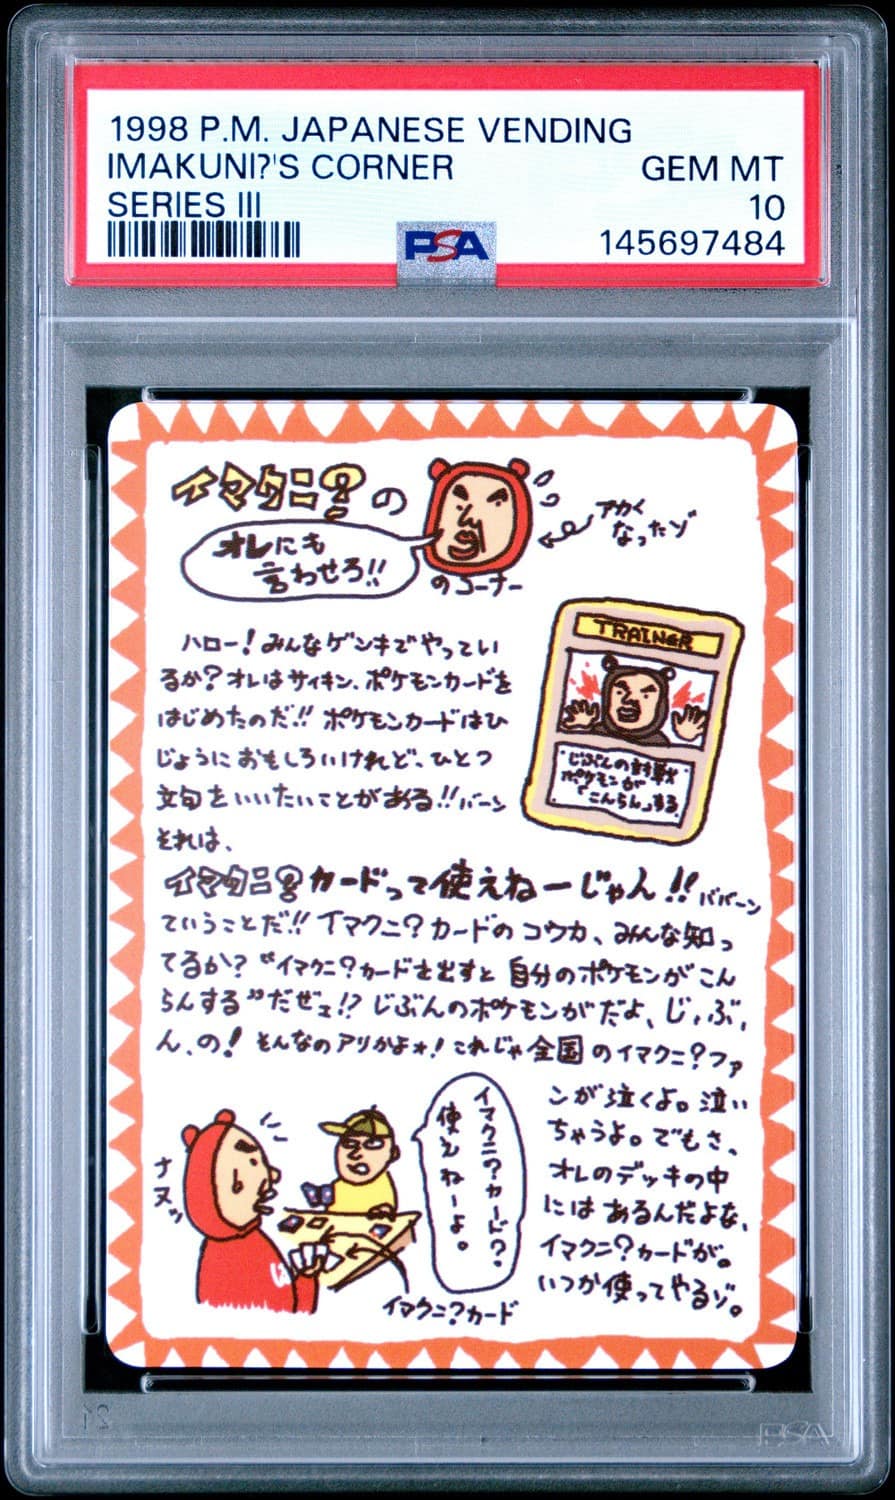 1998 P.M. JAPANESE VENDING
IMAKUNI?'S CORNER
GEM MT
SERIES III
10
PSA
145697484
イマクニ?の
オレにも
言わせろ!!
のコーナー
アカく
なったゾ
ハロー!みんなゲンキでやってい
るか?オレはサイキン、ポケモンカードを
はじめたのだ!!ポケモンカードはひ
じょうにおもしろいけれど、ひとつ
文句をいいたいことがある!!バーン
それは、
TRAINER
じぶんの対戦
ポケモンが
「こんらん」する。
イマクニ?カードって使えねーじゃん!!ババーン
ていうことだ!!イマクニ?カードのコウカ、みんな知っ
てるか?“イマクニ?カードを出すと自分のポケモンがこん
らんする”だぜェ!?じぶんのポケモンがだよ、じ,ぶ,
ん、の!そんなのアリかよォ!これじゃ全国のイマクニ?ファ
ンが泣くよ。泣い
ちゃうよ。でもさ、
オレのデッキの中
にはあるんだよな、
イマクニ?カードが。
いつか使ってやるゾ。
ナヌッ
イマクニ?カード?
使えねーよ。
イマクニ?カード
PSA